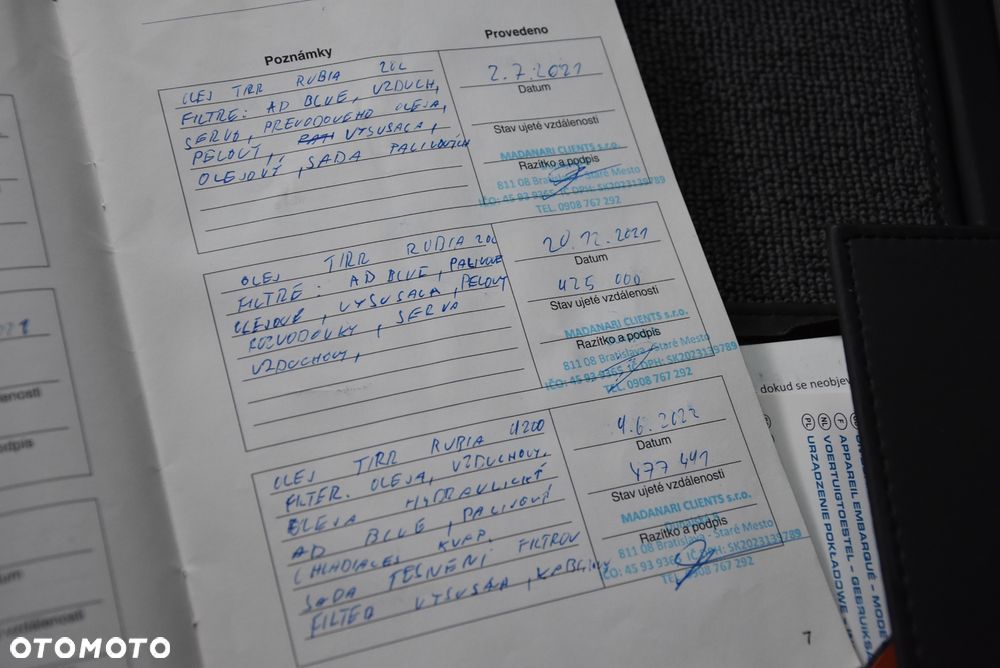 Poznámky
Provedeno
OLEJ TIRR RUBIA 20L
FILTRE: AD BLUE, VZDUCH,
SERVO, PREVODOVEHO OLEJA,
PELOVÝ, VYSUSACA,
OLEJOVÝ, SADA PALIVOVÝCH
2.7.2021
Datum
Stav ujeté vzdálenosti
MADANARI CLIENTS s.r.o.
Razítko a podpis
811 08 Bratislava - Staré Mesto
IČO: 45 93 9365 IČ DPH: SK2023139789
TEL. 0908 767 292
OLEJ TIRR RUBIA 20L
FILTRE: AD BLUE, PALIVOVE
OLEJOVE, VYSUSACA, PELOVY
ROZVODOVKY, SERVA
VZDUCHOVY,
20.12.2021
Datum
425 000
Stav ujeté vzdálenosti
MADANARI CLIENTS s.r.o.
Razítko a podpis
811 08 Bratislava - Staré Mesto
IČO: 45 93 9365 IČ DPH: SK2023139789
TEL. 0908 767 292
OLEJ TIRR RUBIA 4200
FILTER. OLEJA, VZDUCHOVY,
OLEJA HYDRAULICKÝ
AD BLUE, PALIVOVÝ
CHLADIACEJ KVAP.
SADA TESNĚNÍ FILTROV
FILTER VYSUSACA,
4.6.2022
Datum
477 441
Stav ujeté vzdálenosti
MADANARI CLIENTS s.r.o.
Razítko a podpis
811 08 Bratislava - Staré Mesto
IČO: 45 93 9365 IČ DPH: SK2023139789
TEL. 0908 767 292
7
dokud se neobjev
F APPAREIL EMBARQUÉ - MODE
NL VOERTUIGTOESTEL - GEBRUIKSA
PL URZĄDZENIE POKŁADOWE
enosti
dpis
tum
vzdálenosti
OTOMOTO